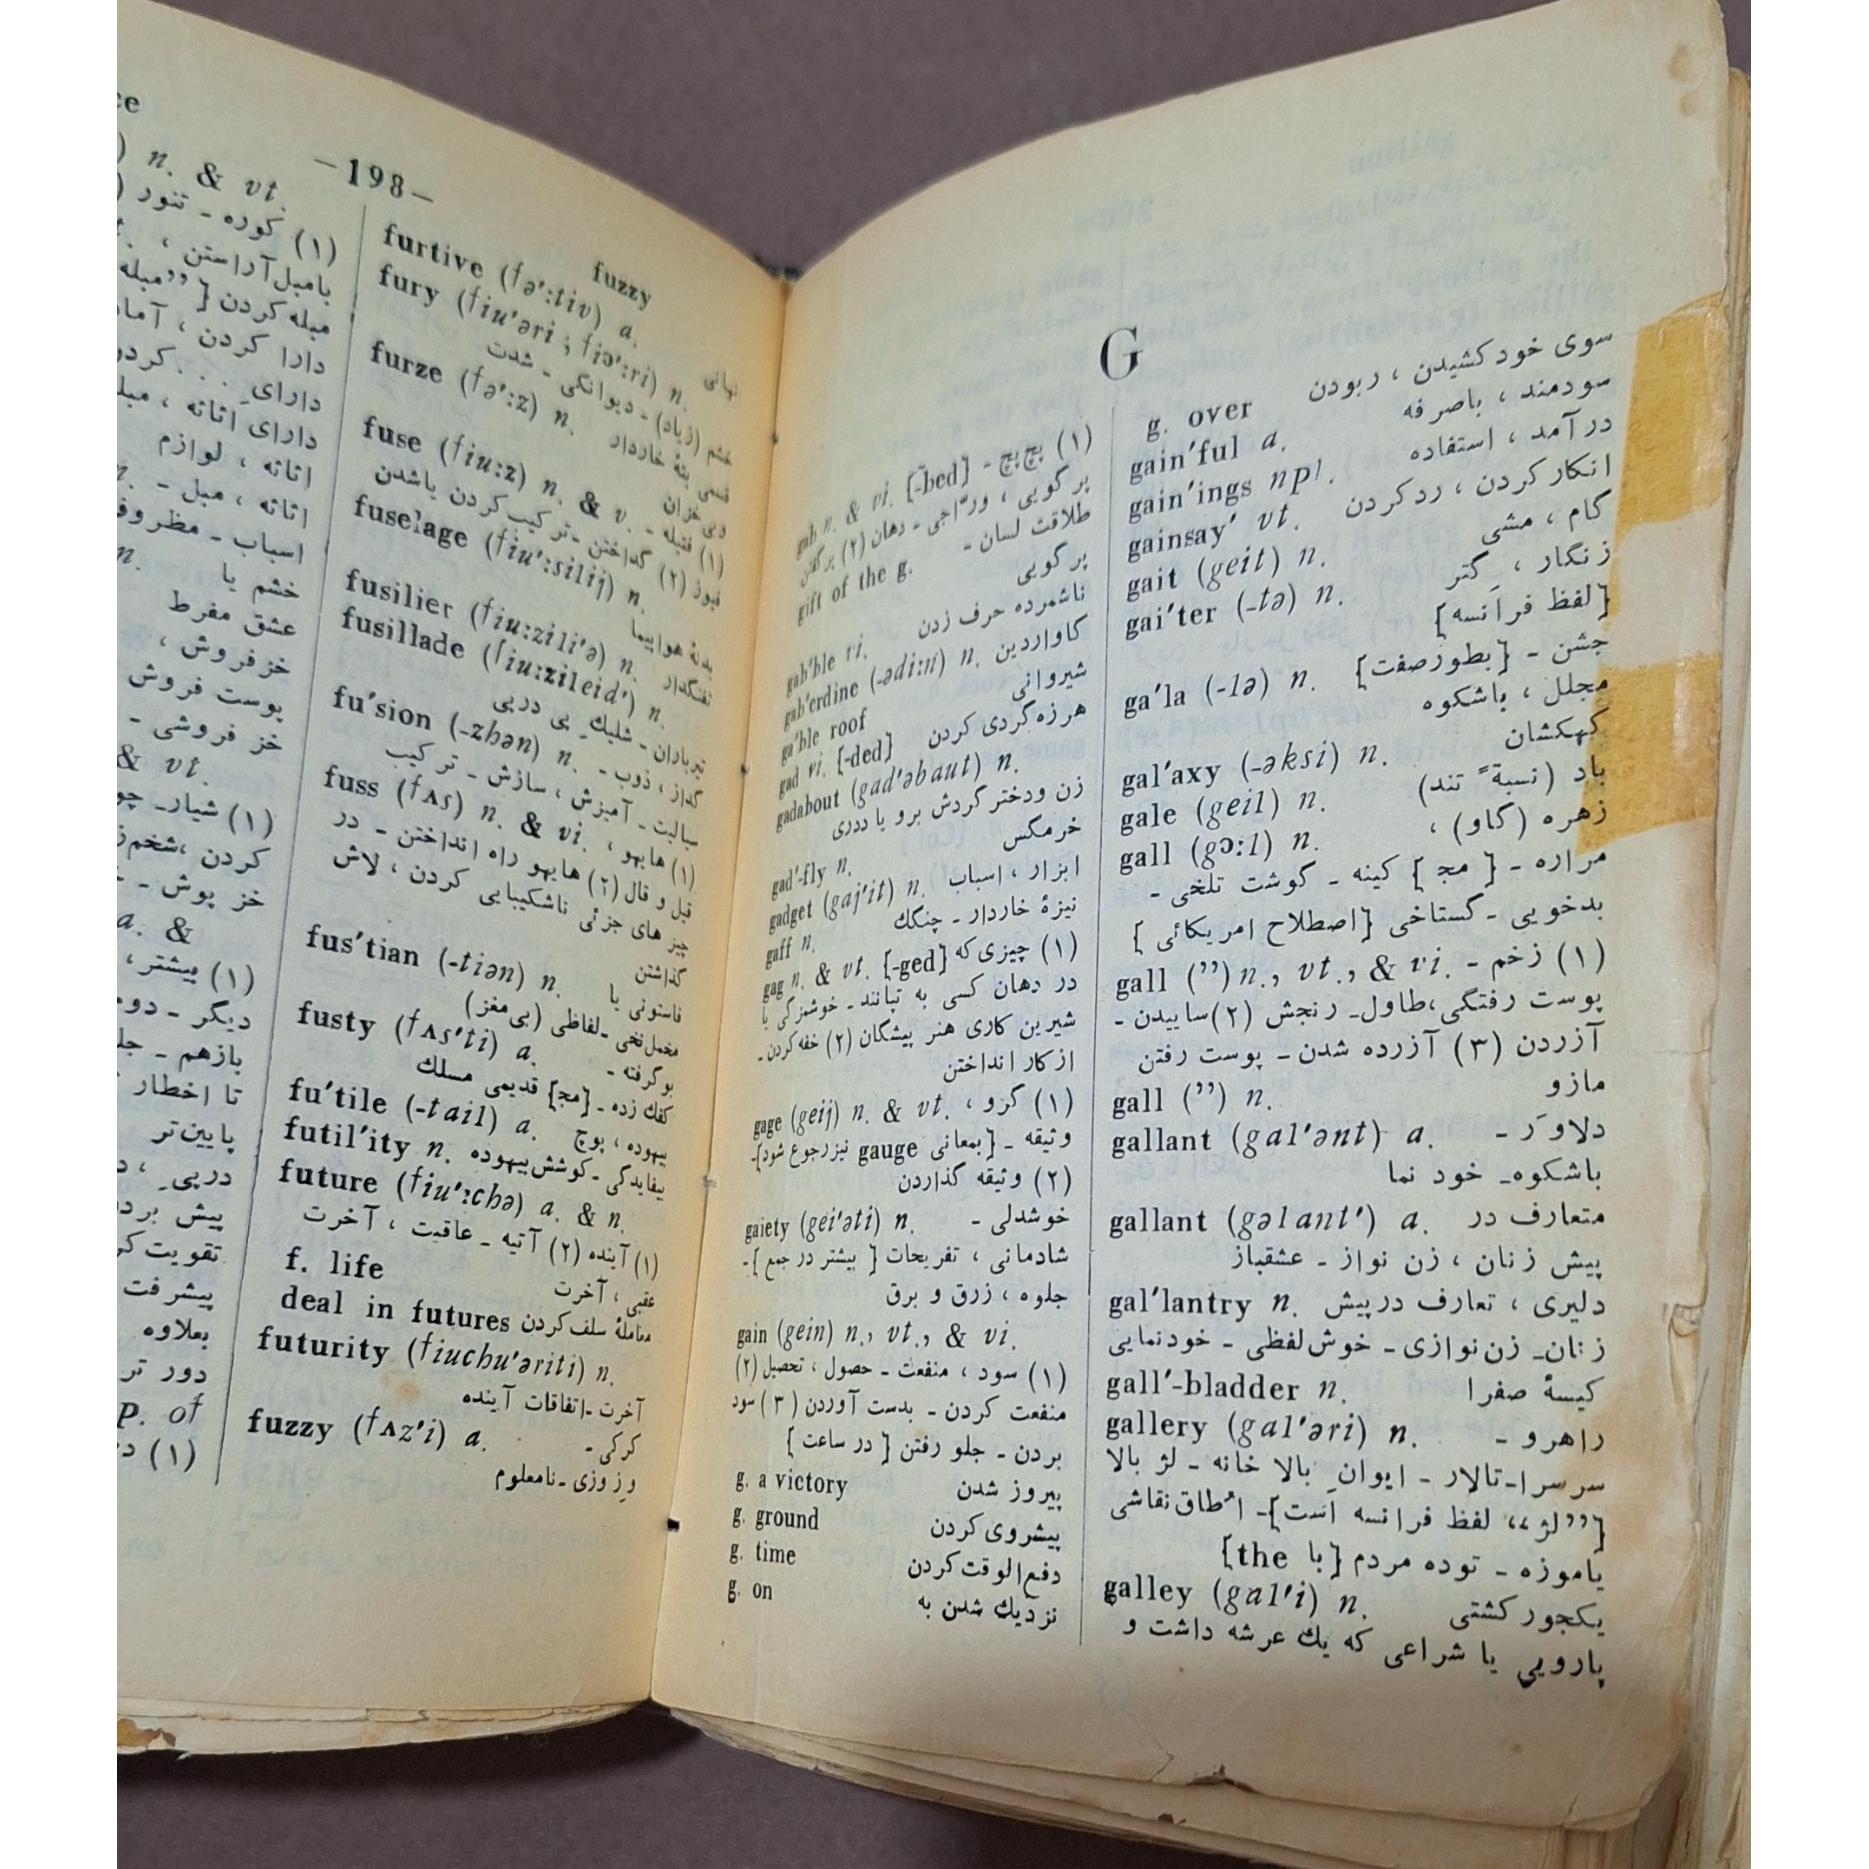 -198-
fuzzy
n. & vt.
(۱) کوره ـ تنور
بامبل آراستن ،
مبله کردن [ ,,مبله
دارا کردن ، آماد
دارای . . . کردن
دارای اثاثه ، مبله
اثاثه ، لوازم
اثاثه ، مبل ـ
اسباب ـ مظروف
خشم یا
عشق مفرط
خزفروش ،
پوست فروش
خز فروشی ـ
& vt.
(۱) شیارـ
کردن ،شخم
خز پوش ـ
a. &
(۱) بیشتر،
دیگر ـ
بازهم ـ
تا اخطار
پایین‌تر
درپی ،
پیش بردن
تقویت
پیشرفت
بعلاوه
دور تر
p. of
(۱)
furtive (fə':tiv) a. نهانی
fury (fiu'əri ; fiə':ri) n.
خشم (زیاد) ـ دیوانگی ـ شدت
furze (fə':z) n. قسمی بتهٔ خاردار
fuse (fiu:z) n. & v.
(۱) فتیله ـ
فیوز (۲) گداختن ـ ترکیب کردن یاشدن
fuselage (fiu':silij) n.
بدنهٔ هواپیما
fusilier (fiu:zili'ə) n. تفنگدار
fusillade (fiu:zileid') n.
تیرباران ـ شلیك پی درپی
fu'sion (-zhən) n. گداز ، ذوب ـ
سیالیت ـ آمیزش ، سازش ـ ترکیب
fuss (fʌs) n. & vi. (۱) هایهو ،
قیل و قال (۲) هایهو راه انداختن ـ در
چیز های جزئی ناشکیبایی کردن ، لاش
گذاشتن
fus'tian (-tiən) n. فاستونی یا
مخمل نخی ـ لفاظی (بی‌مغز)
fusty (fʌs'ti) a. بوگرفته ـ
کفك زده ـ [مج] قدیمی مسلك
fu'tile (-tail) a. بیهوده ، پوچ
futil'ity n. بیفایدگی ـ کوشش بیهوده
future (fiu':chə) a. & n.
(۱) آینده (۲) آتیه ـ عاقبت ، آخرت
f. life عقبی ، آخرت
deal in futures معاملهٔ سلف کردن
futurity (fiuchu'əriti) n.
آخرت ـ اتفاقات آینده
fuzzy (fʌz'i) a. کرکی ـ
وزوزی ـ نامعلوم
G
gab n. & vi. [-bed] (۱) پچ‌پچ ـ
پرگویی ، ورّاجی ـ دهان (۲) پرگفتن
gift of the g. طلاقت لسان ـ
پرگویی
gab'ble vi. ناشمرده حرف زدن
gab'erdine (-ədi:n) n. کاواردین
ga'ble roof شیروانی
gad vi. [-ded] هرزه‌گردی کردن
gadabout (gad'əbaut) n.
زن ودختر گردش برو یا ددری
gad'-fly n. خرمگس
gadget (gaj'it) n. ابزار ، اسباب
gaff n. نیزهٔ خاردار ـ چنگك
gag n. & vt. [-ged] (۱) چیزی که
در دهان کسی به تپانند ـ خوشمزگی یا
شیرین کاری هنر پیشگان (۲) خفه کردن ـ
ازکار انداختن
gage (geij) n. & vt. (۱) گرو ،
وثیقه ـ [بمعانی gauge نیزرجوع شود]ـ
(۲) وثیقه گذاردن
gaiety (gei'əti) n. خوشدلی ـ
شادمانی ، تفریحات [ بیشتر در جمع ]ـ
جلوه ، زرق و برق
gain (gein) n., vt., & vi.
(۱) سود ، منفعت ـ حصول ، تحصیل (۲)
منفعت کردن ـ بدست آوردن (۳) سود
بردن ـ جلو رفتن [ در ساعت ]
g. a victory پیروز شدن
g. ground پیشروی کردن
g. time دفع‌الوقت کردن
g. on نزدیك شدن به
g. over سوی خود کشیدن ، ربودن
gain'ful a. سودمند ، باصرفه
gain'ings npl. درآمد ، استفاده
gainsay' vt. انکارکردن ، ردکردن
gait (geit) n. گام ، مشی
gai'ter (-tə) n. زنگار ، گتر
[لفظ فرانسه]
ga'la (-lə) n. جشن ـ [بطورصفت]
مجلل ، باشکوه
gal'axy (-əksi) n. کهکشان
gale (geil) n. باد (نسبةً تند)
gall (gɔ:l) n. زهره (گاو) ،
مراره ـ [ مج ] کینه ـ گوشت تلخی ـ
بدخویی ـ گستاخی [اصطلاح امریکائی ]
gall (”) n., vt., & vi. (۱) زخم ـ
پوست رفتگی،طاول ـ رنجش (۲)ساییدن ـ
آزردن (۳) آزرده شدن ـ پوست رفتن
gall (”) n. مازو
gallant (gal'ənt) a. دلاوَر ـ
باشکوه ـ خود نما
gallant (gəlant') a. متعارف در
پیش زنان ، زن نواز ـ عشقباز
gal'lantry n. دلیری ، تعارف درپیش
زنان ـ زن‌نوازی ـ خوش‌لفظی ـ خودنمایی
gall'-bladder n. کیسهٔ صفرا
gallery (gal'əri) n. راهرو ـ
سرسرا ـ تالار ـ ایوانِ بالا خانه ـ لژ بالا
[,,لژ،، لفظ فرانسه است] ـ اُطاق نقاشی
یاموزه ـ توده مردم [با the]
galley (gal'i) n. یکجور کشتی
پارویی یا شراعی که یك عرشه داشت و